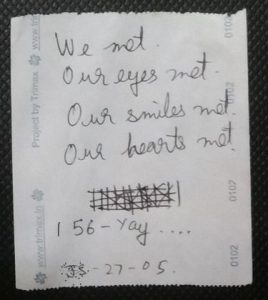 We met.
Our eyes met.
Our smiles met.
Our hearts met.
156-Yay....
-27-05.
Project by Trimax
www.trimax.in
0102
0102
0102
0102